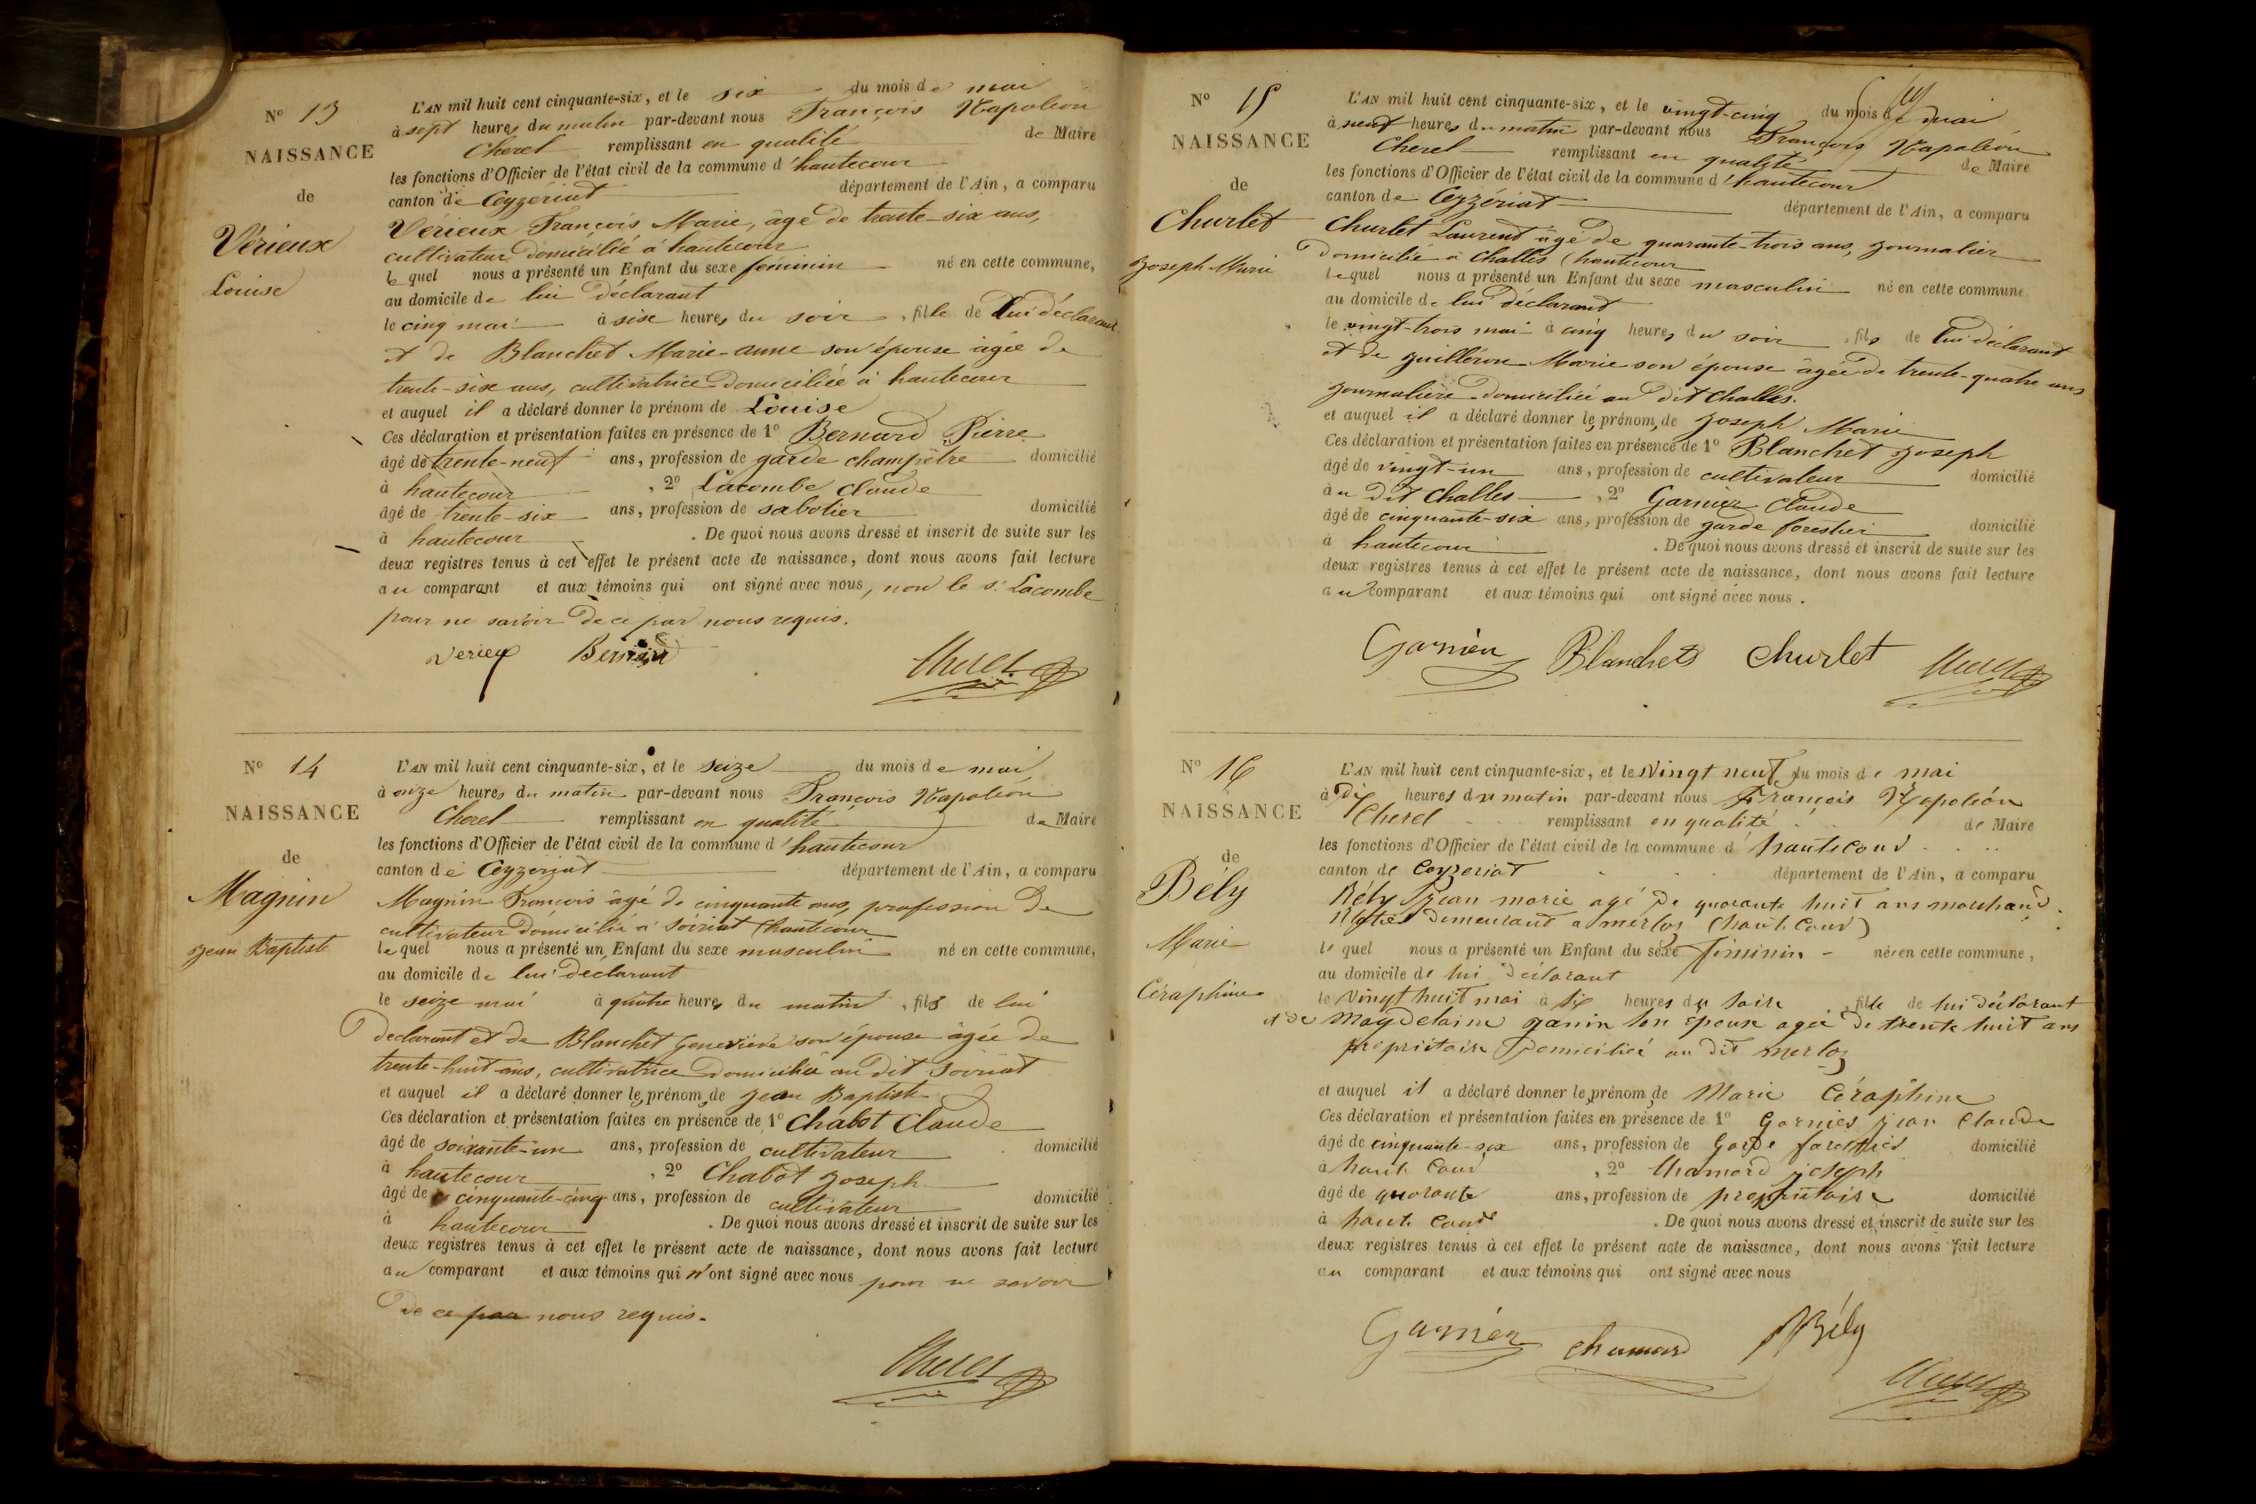 N° 13
NAISSANCE
de
Vérieux
Louise
L'AN mil huit cent cinquante-six, et le six du mois de mai
à sept heures du matin par-devant nous François Napoléon
Cherel remplissant en qualité de Maire
les fonctions d'Officier de l'état civil de la commune d'hautecour
canton de Ceyzériat département de l'Ain, a comparu
Vérieux François Marie, âgé de trente-six ans,
cultivateur domicilié à hautecour
lequel nous a présenté un Enfant du sexe féminin né en cette commune,
au domicile de lui déclarant
le cinq mai à six heures du soir, fille de lui déclarant
et de Blanchet Marie-anne son épouse âgée de
trente-six ans, cultivatrice domiciliée à hautecour
et auquel il a déclaré donner le prénom de Louise
Ces déclaration et présentation faites en présence de 1° Bernard Pierre
âgé de trente-neuf ans, profession de garde champêtre domicilié
à hautecour, 2° Lacombe Claude
âgé de trente-six ans, profession de sabotier domicilié
à hautecour. De quoi nous avons dressé et inscrit de suite sur les
deux registres tenus à cet effet le présent acte de naissance, dont nous avons fait lecture
au comparant et aux témoins qui ont signé avec nous, non le s. Lacombe
pour ne savoir de ce par nous requis.
Verieu Bernard Cherel
N° 14
NAISSANCE
de
Magnin
Jean Baptiste
L'AN mil huit cent cinquante-six, et le seize du mois de mai
à onze heures du matin par-devant nous François Napoléon
Cherel remplissant en qualité de Maire
les fonctions d'Officier de l'état civil de la commune d'hautecour
canton de Ceyzériat département de l'Ain, a comparu
Magnin François âgé de cinquante ans, profession de
cultivateur domicilié à Soiriat (hautecour
lequel nous a présenté un Enfant du sexe masculin né en cette commune,
au domicile de lui déclarant
le seize mai à quatre heures du matin, fils de lui
déclarant et de Blanchet Geneviève son épouse âgée de
trente-huit ans, cultivatrice domiciliée au dit Soiriat
et auquel il a déclaré donner les prénom de Jean Baptiste
Ces déclaration et présentation faites en présence de 1° Chabot Claude
âgé de soixante-un ans, profession de cultivateur domicilié
à hautecour, 2° Chabot Joseph
âgé de cinquante-cinq ans, profession de cultivateur domicilié
à hautecour. De quoi nous avons dressé et inscrit de suite sur les
deux registres tenus à cet effet le présent acte de naissance, dont nous avons fait lecture
au comparant et aux témoins qui n'ont signé avec nous pour ne savoir
de ce par nous requis.
Cherel
N° 15
NAISSANCE
de
Churlet
Joseph Marie
L'AN mil huit cent cinquante-six, et le vingt-cinq du mois de mai
à neuf heures du matin par-devant nous François Napoléon
Cherel remplissant en qualité de Maire
les fonctions d'Officier de l'état civil de la commune d'hautecour
canton de Ceyzériat département de l'Ain, a comparu
Churlet Laurent âgé de quarante-trois ans, journalier
domicilié à Challes (hautecour
lequel nous a présenté un Enfant du sexe masculin né en cette commune
au domicile de lui déclarant
le vingt-trois mai à cinq heures du soir, fils de lui déclarant
et de Guilleron Marie son épouse âgée de trente-quatre ans
journalière domiciliée au dit Challes.
et auquel il a déclaré donner les prénom de Joseph Marie
Ces déclaration et présentation faites en présence de 1° Blanchet Joseph
âgé de vingt-un ans, profession de cultivateur domicilié
au dit Challes, 2° Garnier Claude
âgé de cinquante-six ans, profession de garde forestier domicilié
à hautecour. De quoi nous avons dressé et inscrit de suite sur les
deux registres tenus à cet effet le présent acte de naissance, dont nous avons fait lecture
au comparant et aux témoins qui ont signé avec nous.
Garnier Blanchet Churlet Cherel
N° 16
NAISSANCE
de
Bély
Marie
Céraphine
L'AN mil huit cent cinquante-six, et le Vingt neuf du mois de mai
à Dix heures du matin par-devant nous François Napoléon
Cherel remplissant en qualité de Maire
les fonctions d'Officier de l'état civil de la commune d'hautecour
canton de Ceyzeriat département de l'Ain, a comparu
Bély Jean marie agé De quarante huit ans marchand
demeurant a merloz (haute Cour)
lequel nous a présenté un Enfant du sexe féminin né en cette commune,
au domicile de lui déclarant
le Vingt huit mai à six heures du soir, fille de lui déclarant
et de Magdelaine Janin son épouse agée de trente huit ans
propriétaire Domiciliée au dit merloz
et auquel il a déclaré donner le prénom de Marie Céraphine
Ces déclaration et présentation faites en présence de 1° Garnier jean Claude
âgé de cinquante-six ans, profession de Garde forestier domicilié
à haute Cour, 2° Chamard joseph
âgé de quarante ans, profession de propriétaire domicilié
à haute Cour. De quoi nous avons dressé et inscrit de suite sur les
deux registres tenus à cet effet le présent acte de naissance, dont nous avons fait lecture
au comparant et aux témoins qui ont signé avec nous
Garnier Chamard Bély
Cherel